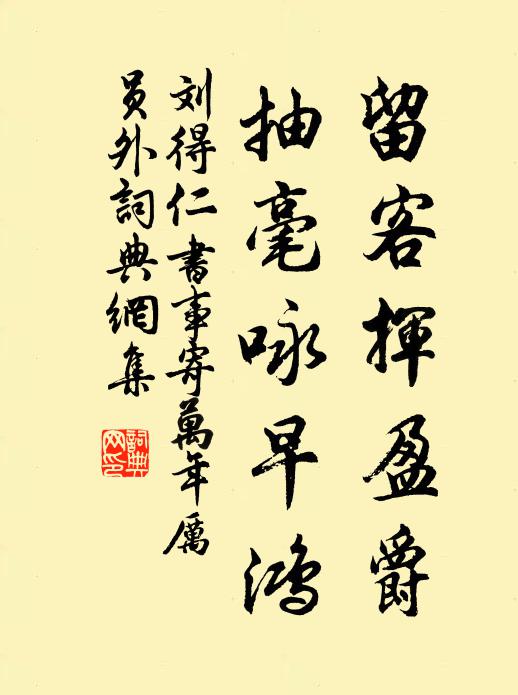 留客揮盈爵
抽毫咏早鸿
刘得仁書事寄萬年厲
員外詞典網集
詞典网印